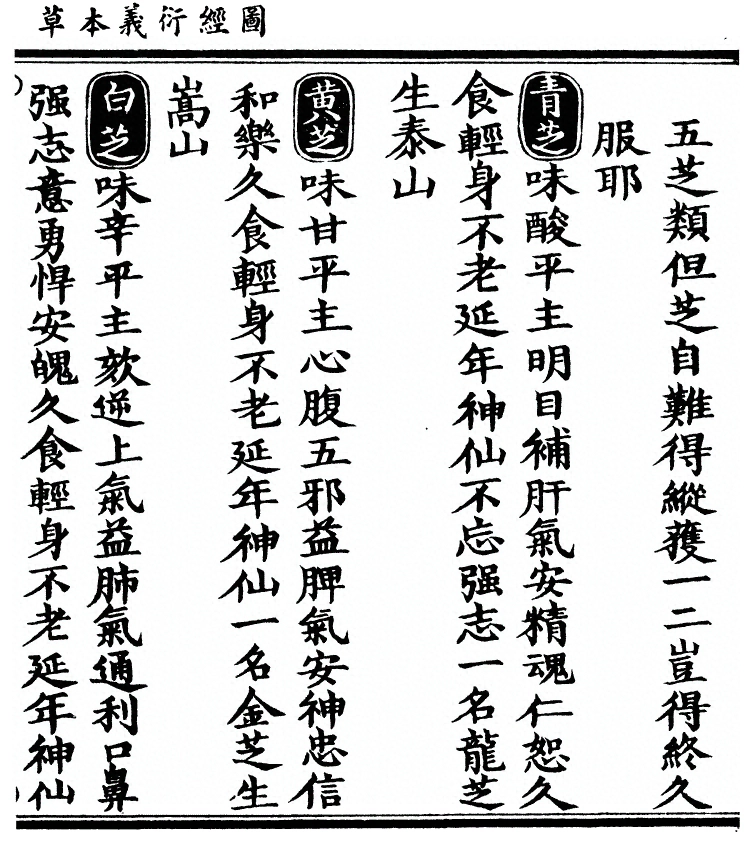 草本義衍經圖
五芝類但芝自難得縱獲一二豈得終久
服耶
青芝味酸平主明目補肝氣安精魂仁恕久
食輕身不老延年神仙不忘强志一名龍芝
生泰山
黃芝味甘平主心腹五邪益脾氣安神忠信
和樂久食輕身不老延年神仙一名金芝生
嵩山
白芝味辛平主欬逆上氣益肺氣通利口鼻
强志意勇悍安魄久食輕身不老延年神仙